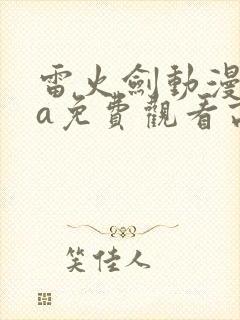 雷火劍動漫
a免費觀看
笑佳人